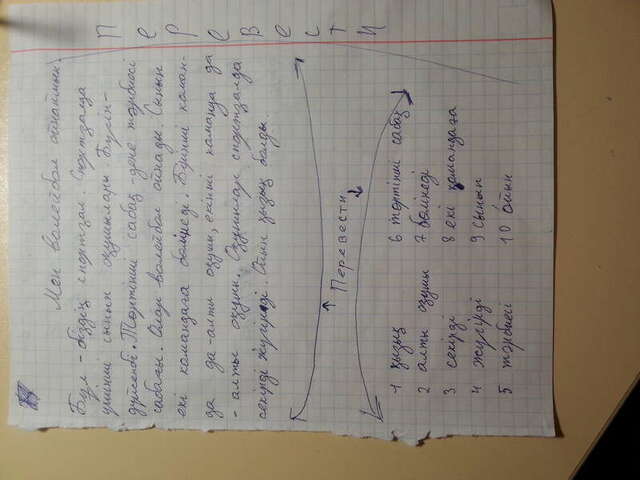 Мен волейбол ойнаймын.
Бұл - біздің спортзал. Спортзалда
үшінші сынып оқушылары. Бүгін-
дүйсенбі. Төртінші сабақ - дене тәрбиесі
сабағы. Олар волейбол ойнады. Сынып
екі командаға бөлінеді. Бірінші коман-
да да - алты оқушы, екінші команда да
- алты оқушы. Оқушылар спортзалда
секірді жүгірді. Ойын қызық болды.
Перевести
Перевести
1 қызық
2 алты оқушы
3 секірді
4 жүгірді
5 тәрбиесі
6 төртінші сабақ
7 бөлінеді
8 екі командаға
9 сынып
10 ойын